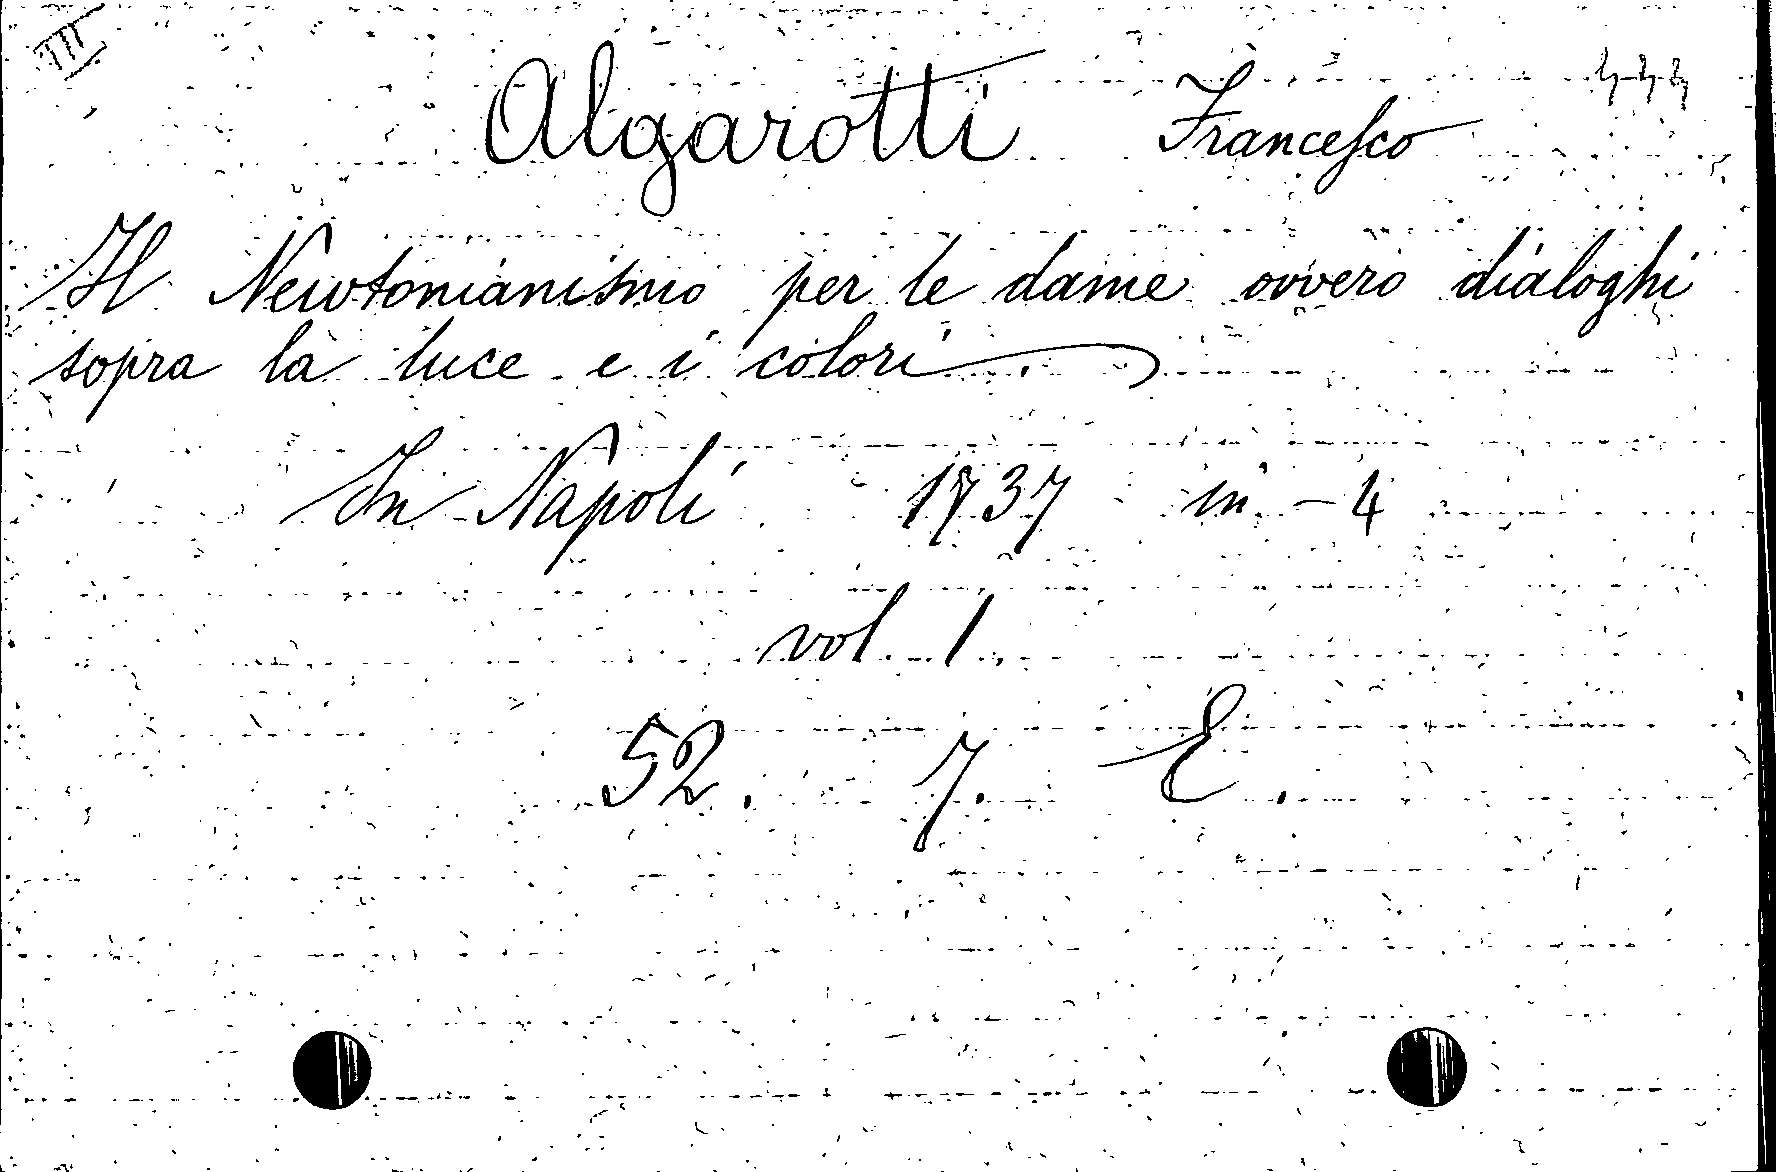 III
Algarotti Francesco
Il Newtonianismo per le dame ovvero dialoghi
sopra la luce e i colori.
In Napoli 1737 in-4
vol. 1.
52. 7. E.